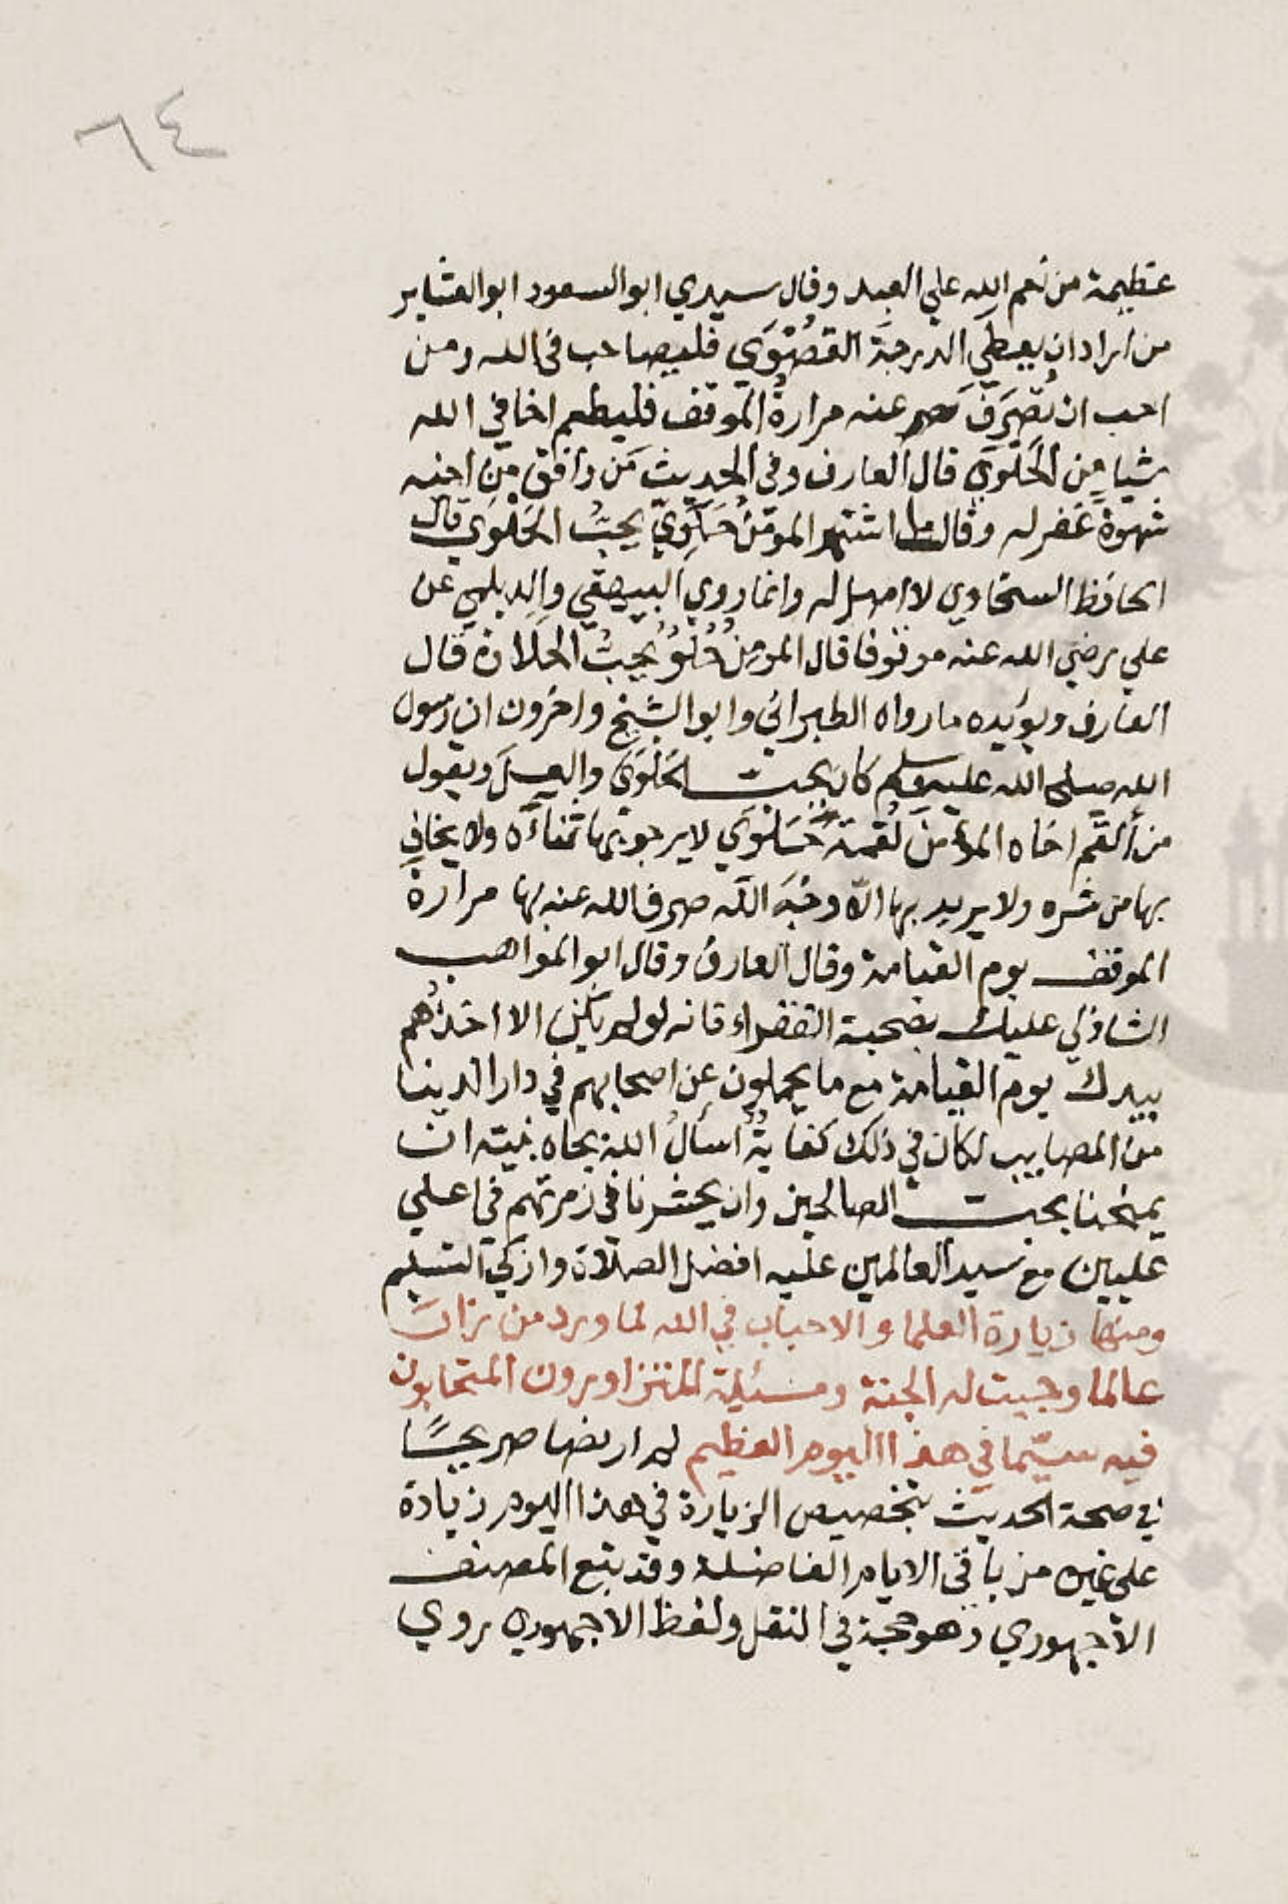 ٦٤
عظيمة من نعم الله علي العبد وقال سيدي ابو السعود ابو العشاير
من اراد ان يعطي الدرجة القصوي فليصاحب في الله ومن
احب ان تصرف عنه مرارة الموقف فليطعم اخا في الله
شيا من الحلوي قال العارف وفي الحديث من وافق من اخيه
شهوة غفر له وقال ما اشتهر المومن حلوي يحب الحلوي قال
الحافظ السخاوي لا اصل له وانما روي البيهقي والديلمي عن
علي رضي الله عنه موقوفا قال المومن حلو يحب الحلاوة قال
العارف ويويده ما رواه الطبراني وابو الشيخ واخرون ان رسول
الله صلي الله عليه وسلم كان يحب الحلوي والعسل ويقول
من ألقم اخاه المؤمن لقمة حلوي لا يرجو بها ثناءه ولا يخاف
بها من شره ولا يريد بها الا وجه الله صرف الله عنه بها مرارة
الموقف يوم القيامة وقال العارف وقال ابو المواهب
الشاذلي عليك بصحبة الفقراء فانه لو لم يكن الا اخذهم
بيدك يوم القيامة مع ما يحملون عن اصحابهم في دار الدنيا
من المصايب لكان في ذلك كفاية اسأل الله بجاه نبيه ان
يمنحنا بحب الصالحين وان يحشرنا في زمرتهم في اعلي
عليين مع سيد العالمين عليه افضل الصلاة وازكي التسليم
ومنها زيارة العلما والاحباب في الله لما ورد من زار
عالما وجبت له الجنة المتزاورون المتحابون
فيه سيما في هذا اليوم العظيم لم ار نصا صريحًا
في صحة الحديث بتخصيص الزيارة في هذا اليوم زيادة
علي غيره من باقي الايام الفاضلة وقد تبع المصنف
الأجهوري وهو حجة في النقل ولفظ الاجهوري روي